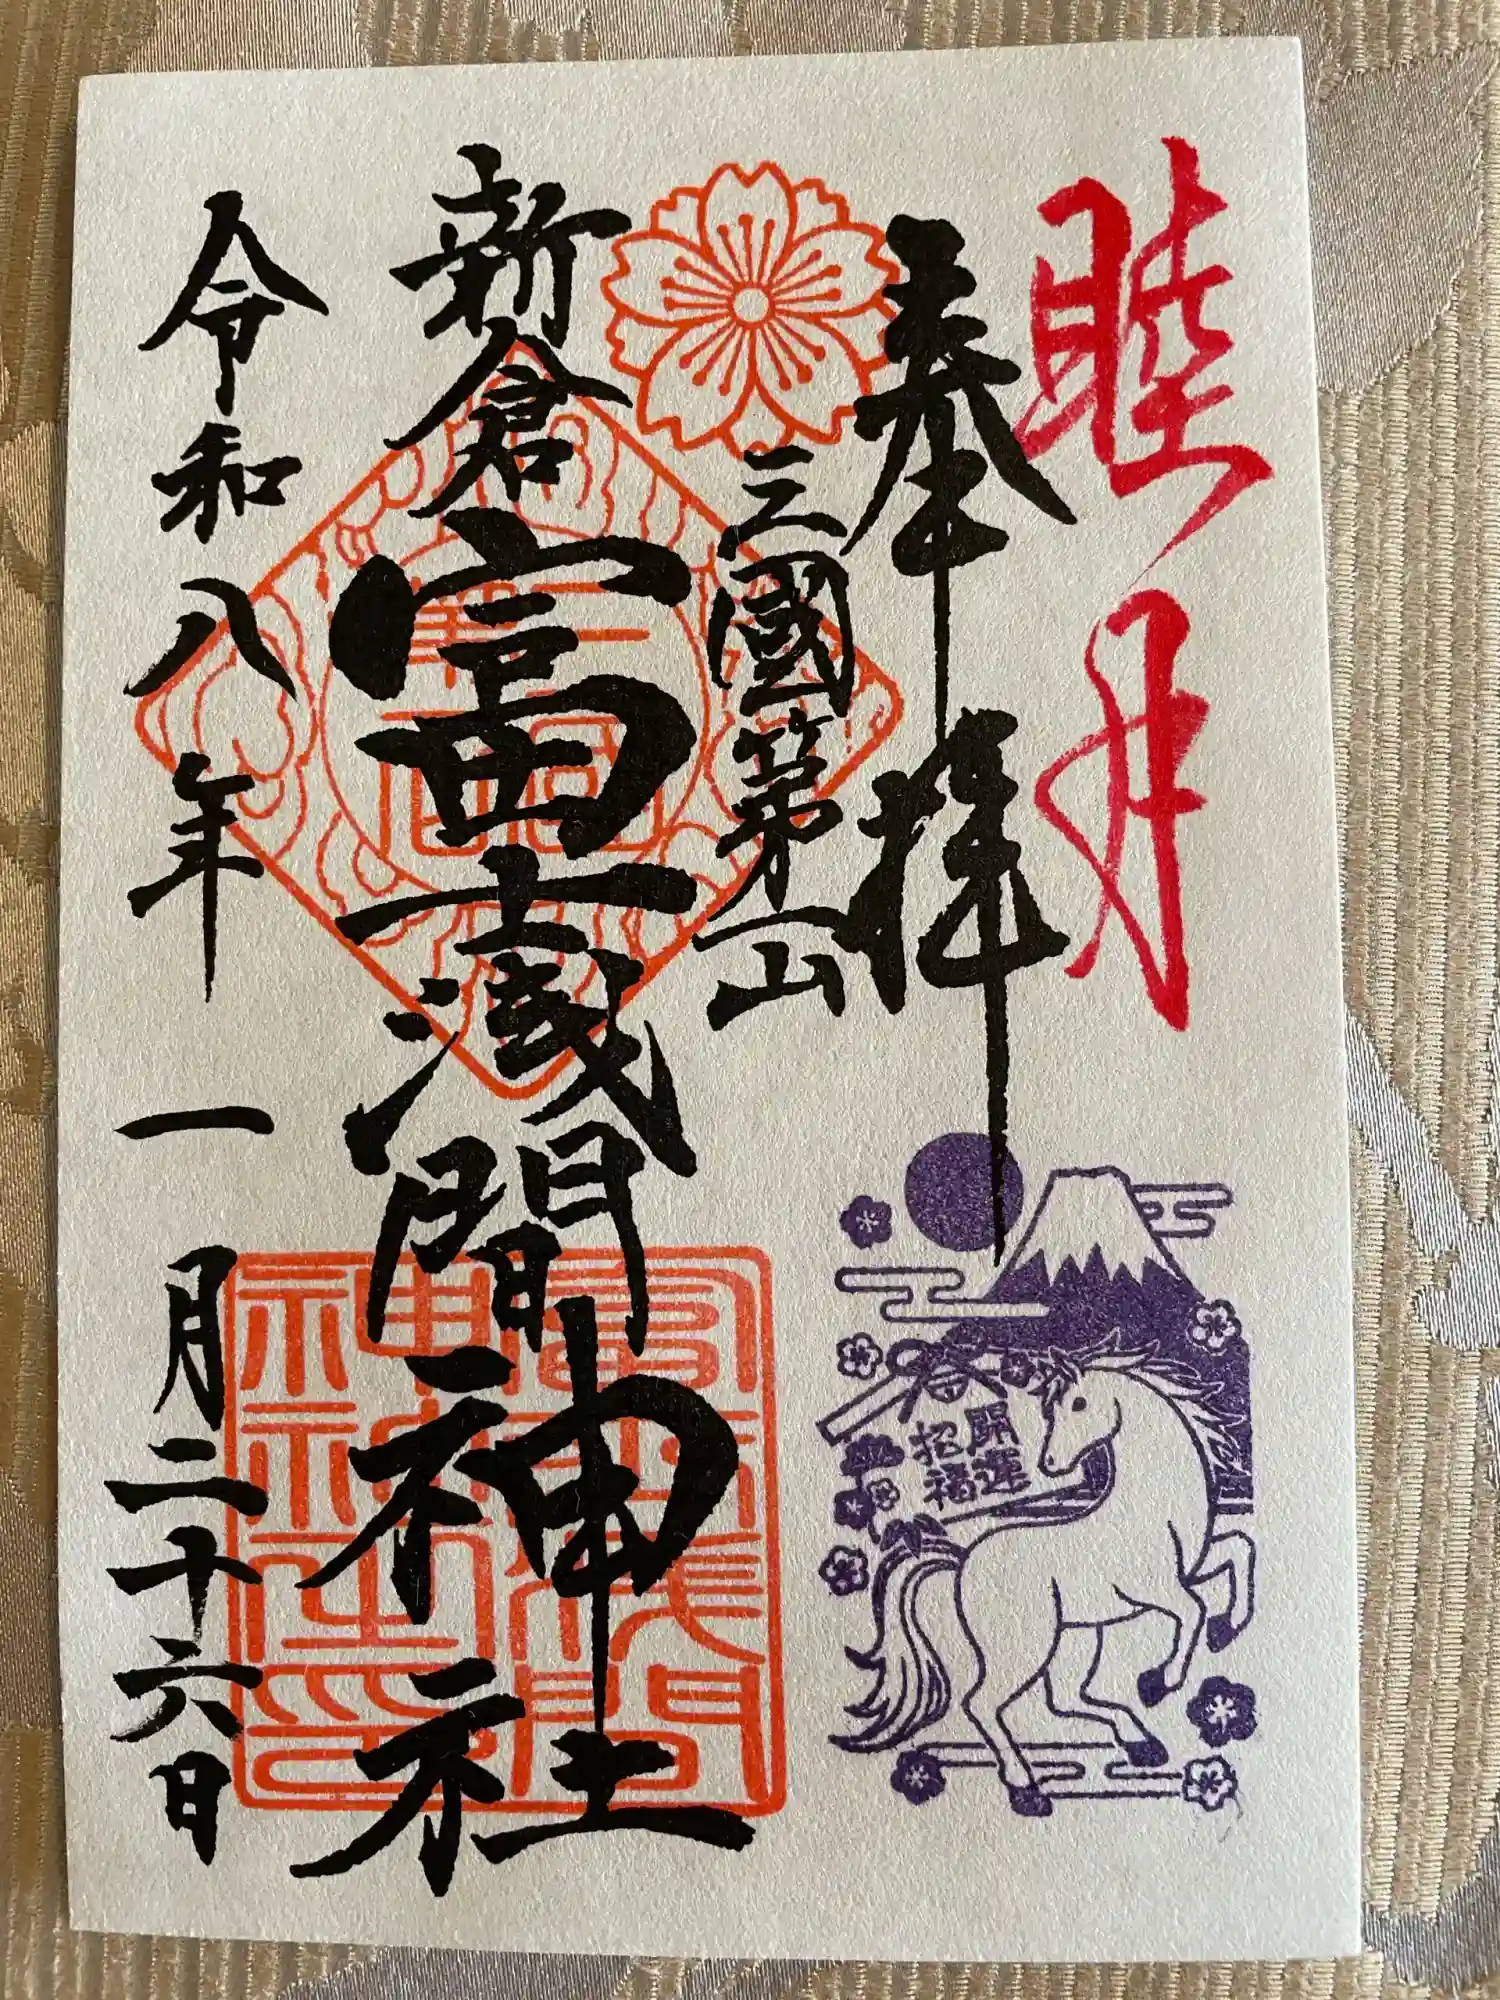 睦月
奉拝
三國第一山
新倉富士浅間神社
令和八年一月二十六日
開運
招福